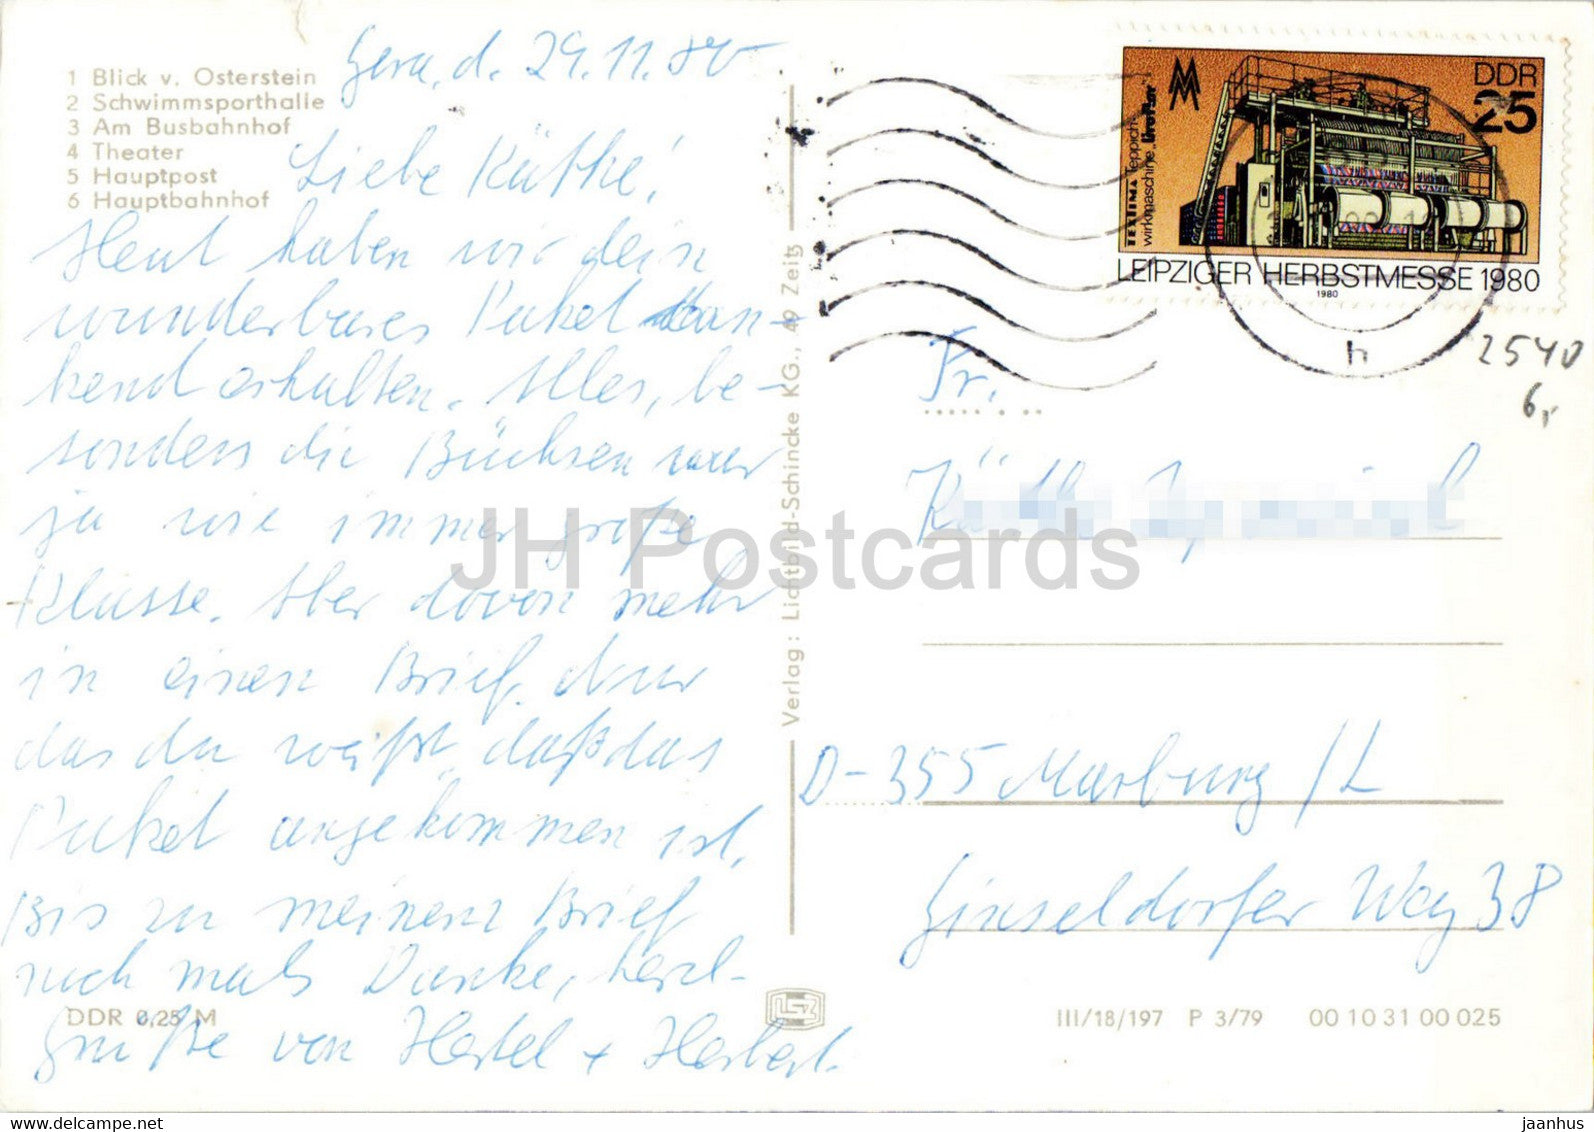 1 Blick v. Osterstein
2 Schwimmsporthalle
3 Am Busbahnhof
4 Theater
5 Hauptpost
6 Hauptbahnhof
Gera, d. 29.11.80
Liebe Käthe!
Heut haben wir dein
wunderbares Paket dan-
kend erhalten. Alles, be-
sonders die Büchsen war
ja wie immer große
Klasse. Aber davon mehr
in einen Brief. Nur
das du weißt, daß das
Paket angekommen ist.
Bis zu meinem Brief
noch mals Danke, herzl-
Grüße von Hertel + Herbert.
DDR 0,25 M
Verlag: Lichtbild-Schincke KG., 49 Zeitz
MM
DDR
25
TEXTIMA Teppich-
wirkmaschine
LEIPZIGER HERBSTMESSE 1980
1980
h
2540
6,
Fr.
Käthe
D-355 Marburg/L
Ginseldorfer Weg 38
III/18/197 P 3/79 00 10 31 00 025
JH Postcards
www.delcampe.net
jaanhus